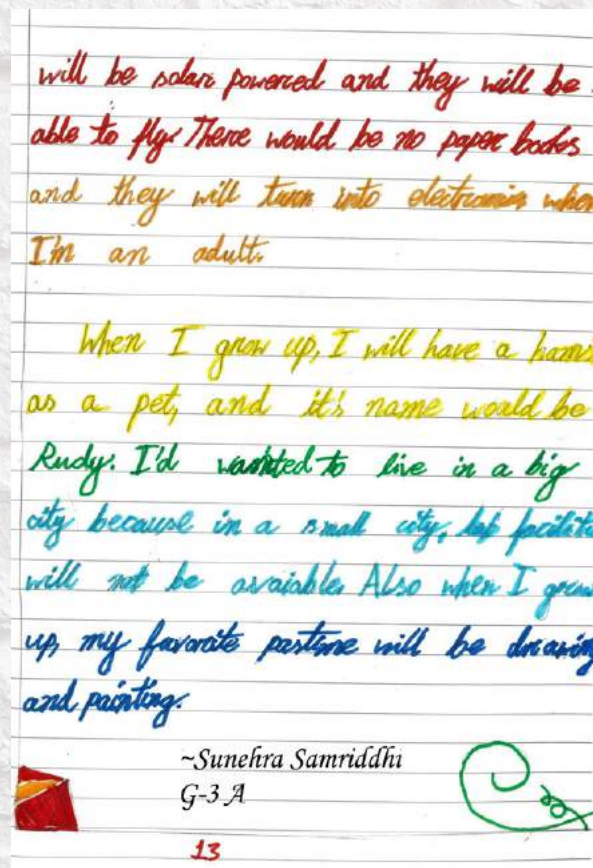 will be solar powered and they will be
able to fly. There would be no paper books
and they will turn into electronics when
I'm an adult.
When I grow up, I will have a hams
as a pet, and it's name would be
Rudy. I'd wanted to live in a big
city because in a small city, facilitie
will not be avaiable. Also when I grow
up, my favorate pastime will be drawing
and painting.
~Sunehra Samriddhi
G-3 A
13